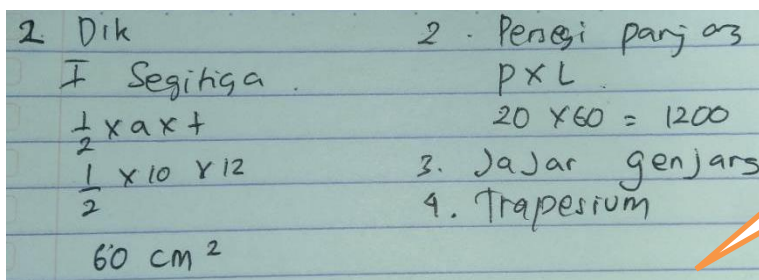 2. Dik
I Segitiga.
1/2 x a x t
1/2 x 10 x 12
60 cm²
2. Persegi panjang
P x L
20 x 60 = 1200
3. Jajar genjang
4. Trapesium